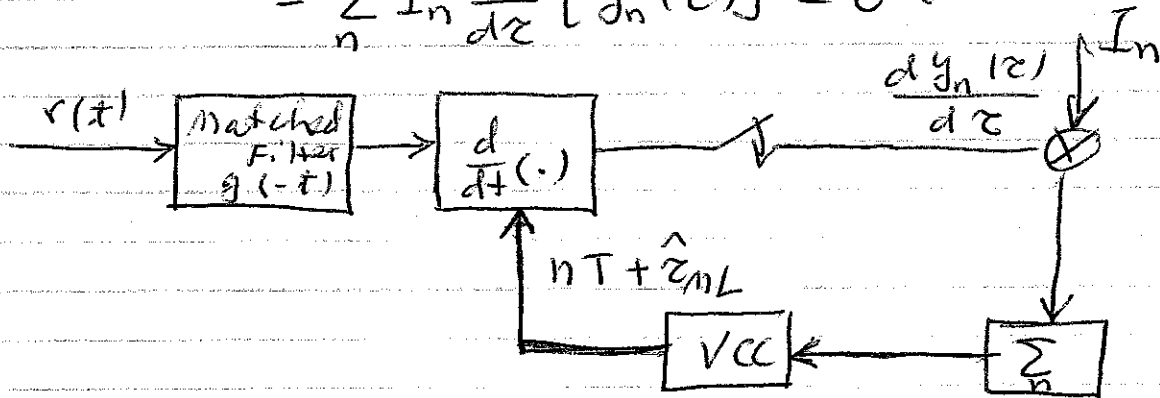 = Σ_n I_n d/dτ [y_n(τ)] = 0
r(t)
Matched
Filter
g(-t)
d/dt (·)
dy_n(τ)/dτ
I_n
⊗
nT + τ̂_ML
VCC
Σ_n